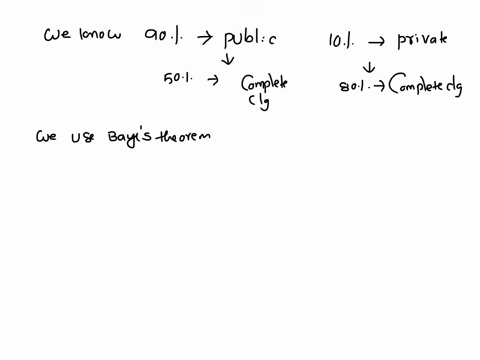 we know 90.1. → public 10.1. → private
↓ ↓
50.1. → Complete clg 80.1. → Complete clg
we use Baye's theorem